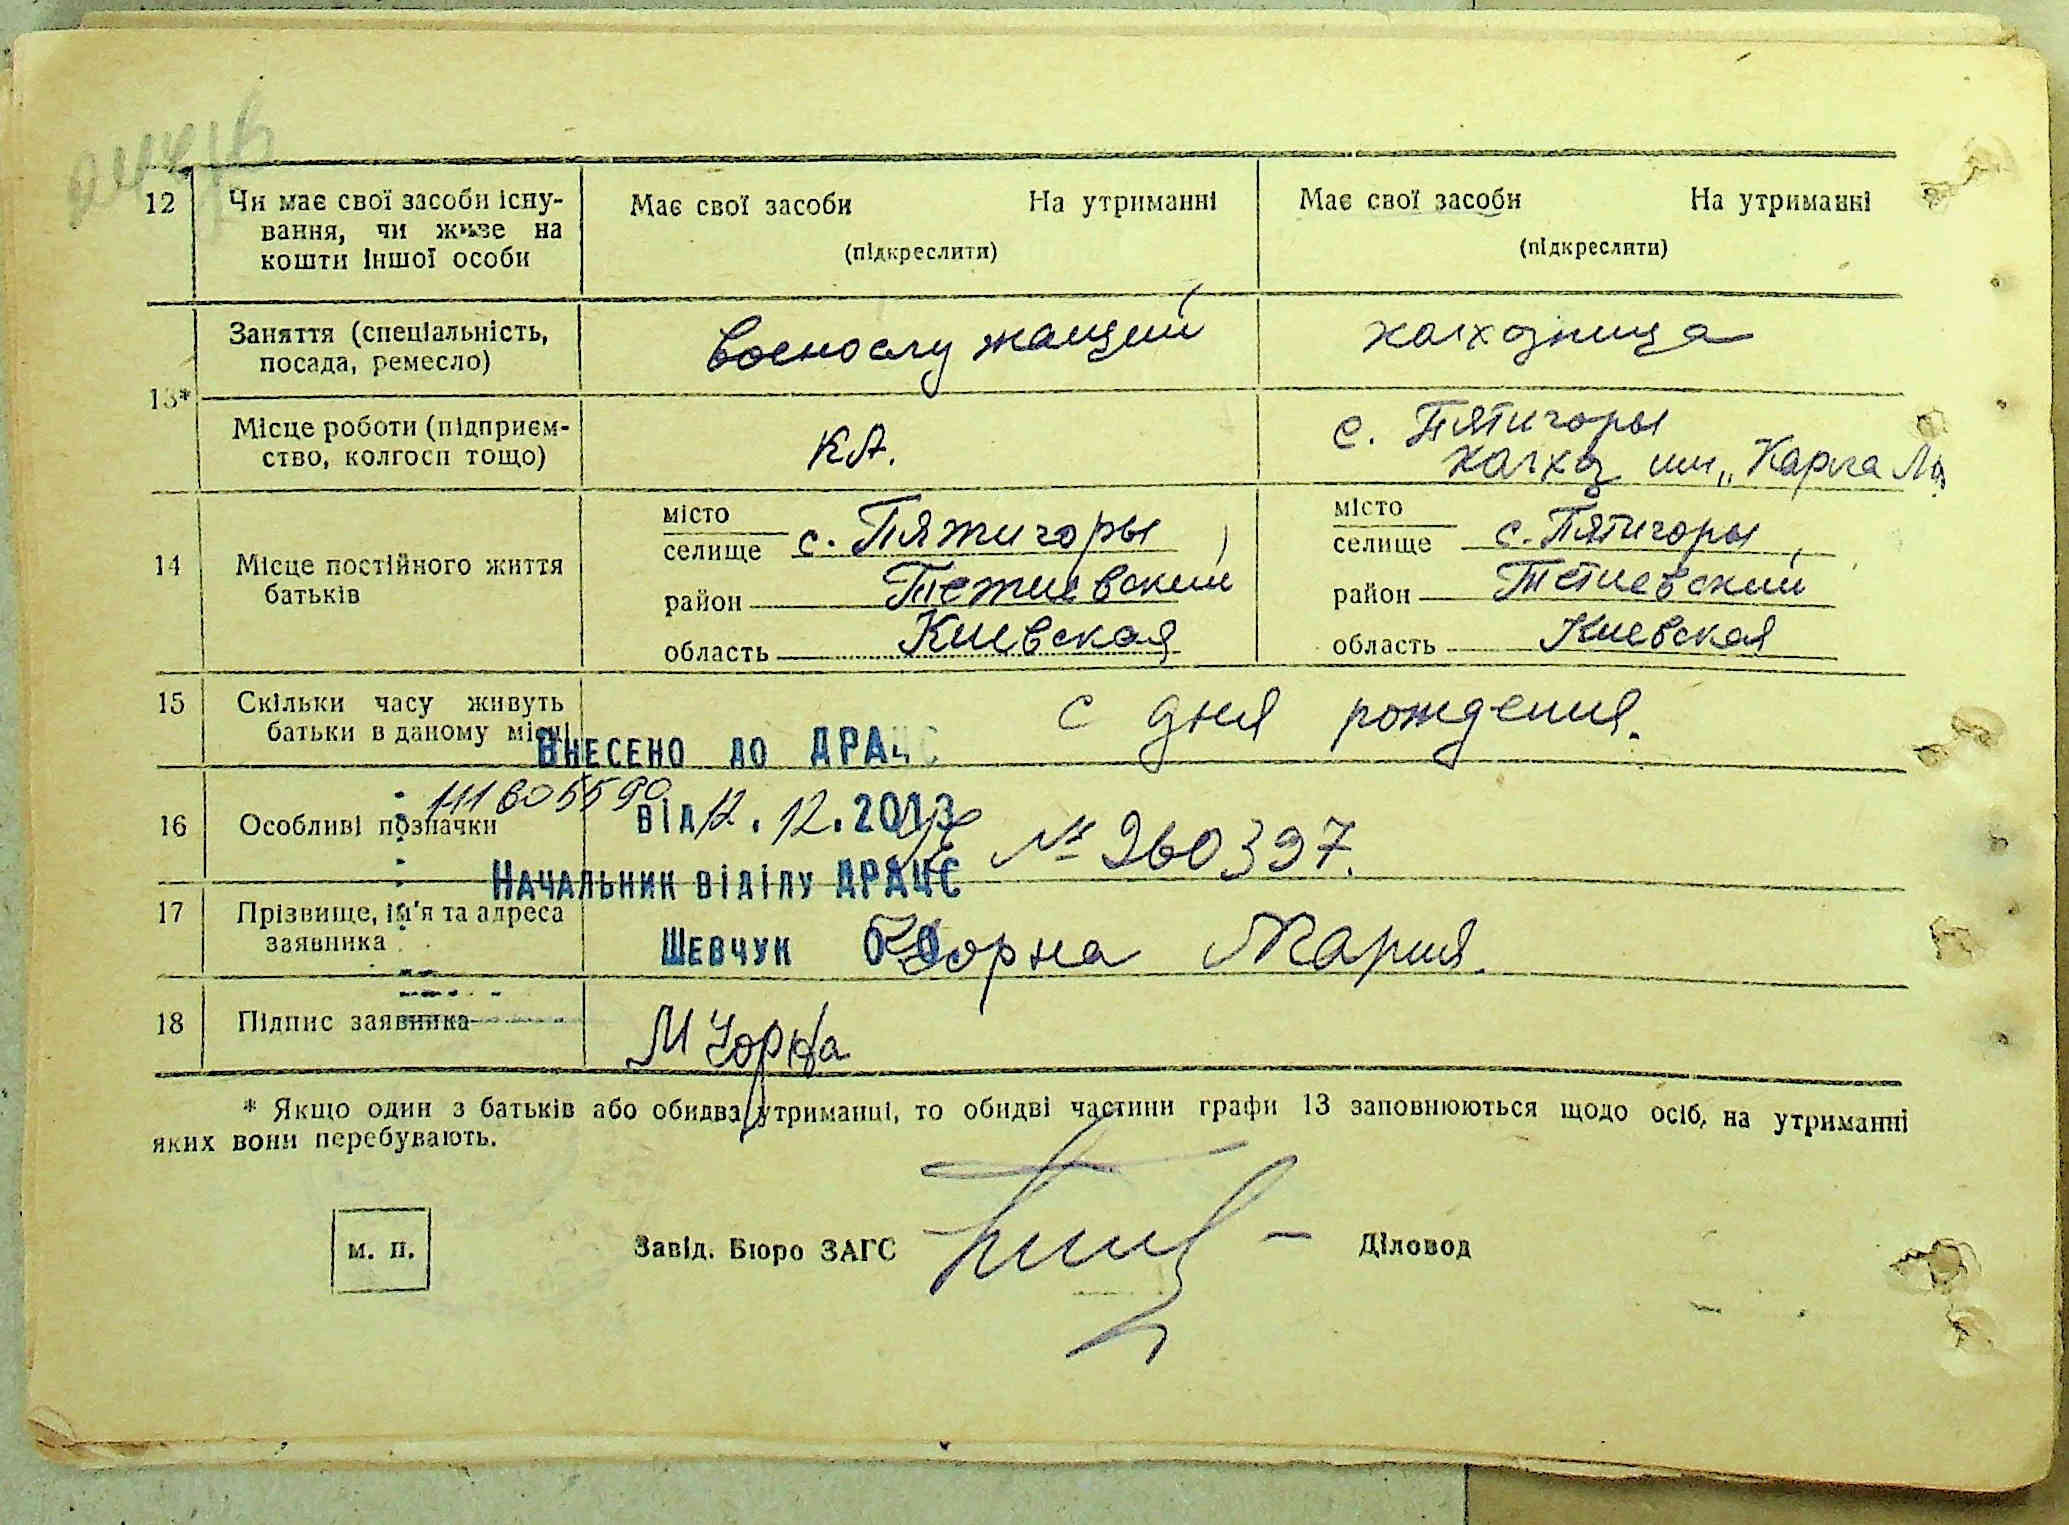 12 Чи має свої засоби існу- Має свої засоби На утриманні Має свої засоби На утриманні
вання, чи живе на (підкреслити) (підкреслити)
кошти іншої особи
13* Заняття (спеціальність, военослужащий колхозница
посада, ремесло)
Місце роботи (підприєм- КА. с. Пятигоры
ство, колгосп тощо) колхоз им „Карла
14 Місце постійного життя місто місто
батьків селище с. Пятигоры, селище с. Пятигоры,
район Тетиевский район Тетиевский
область Киевская область Киевская
15 Скільки часу живуть с дня рождения.
батьки в даному місці
Внесено до ДРАЦС
16 Особливі позначки від 12.12.2013 № 260397.
Начальник відділу ДРАЦС
17 Прізвище, ім'я та адреса
заявника Шевчук Чорна Мария.
18 Підпис заявника М Чорна
* Якщо один з батьків або обидва утриманці, то обидві частини графи 13 заповнюються щодо осіб, на утриманні
яких вони перебувають.
м. п. Завід. Бюро ЗАГС Діловод